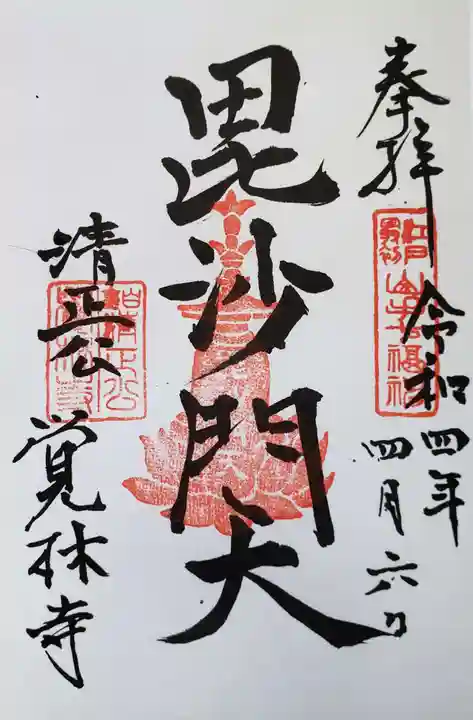 奉拝
令和四年
四月六日
毘沙門天
清正公
覚林寺